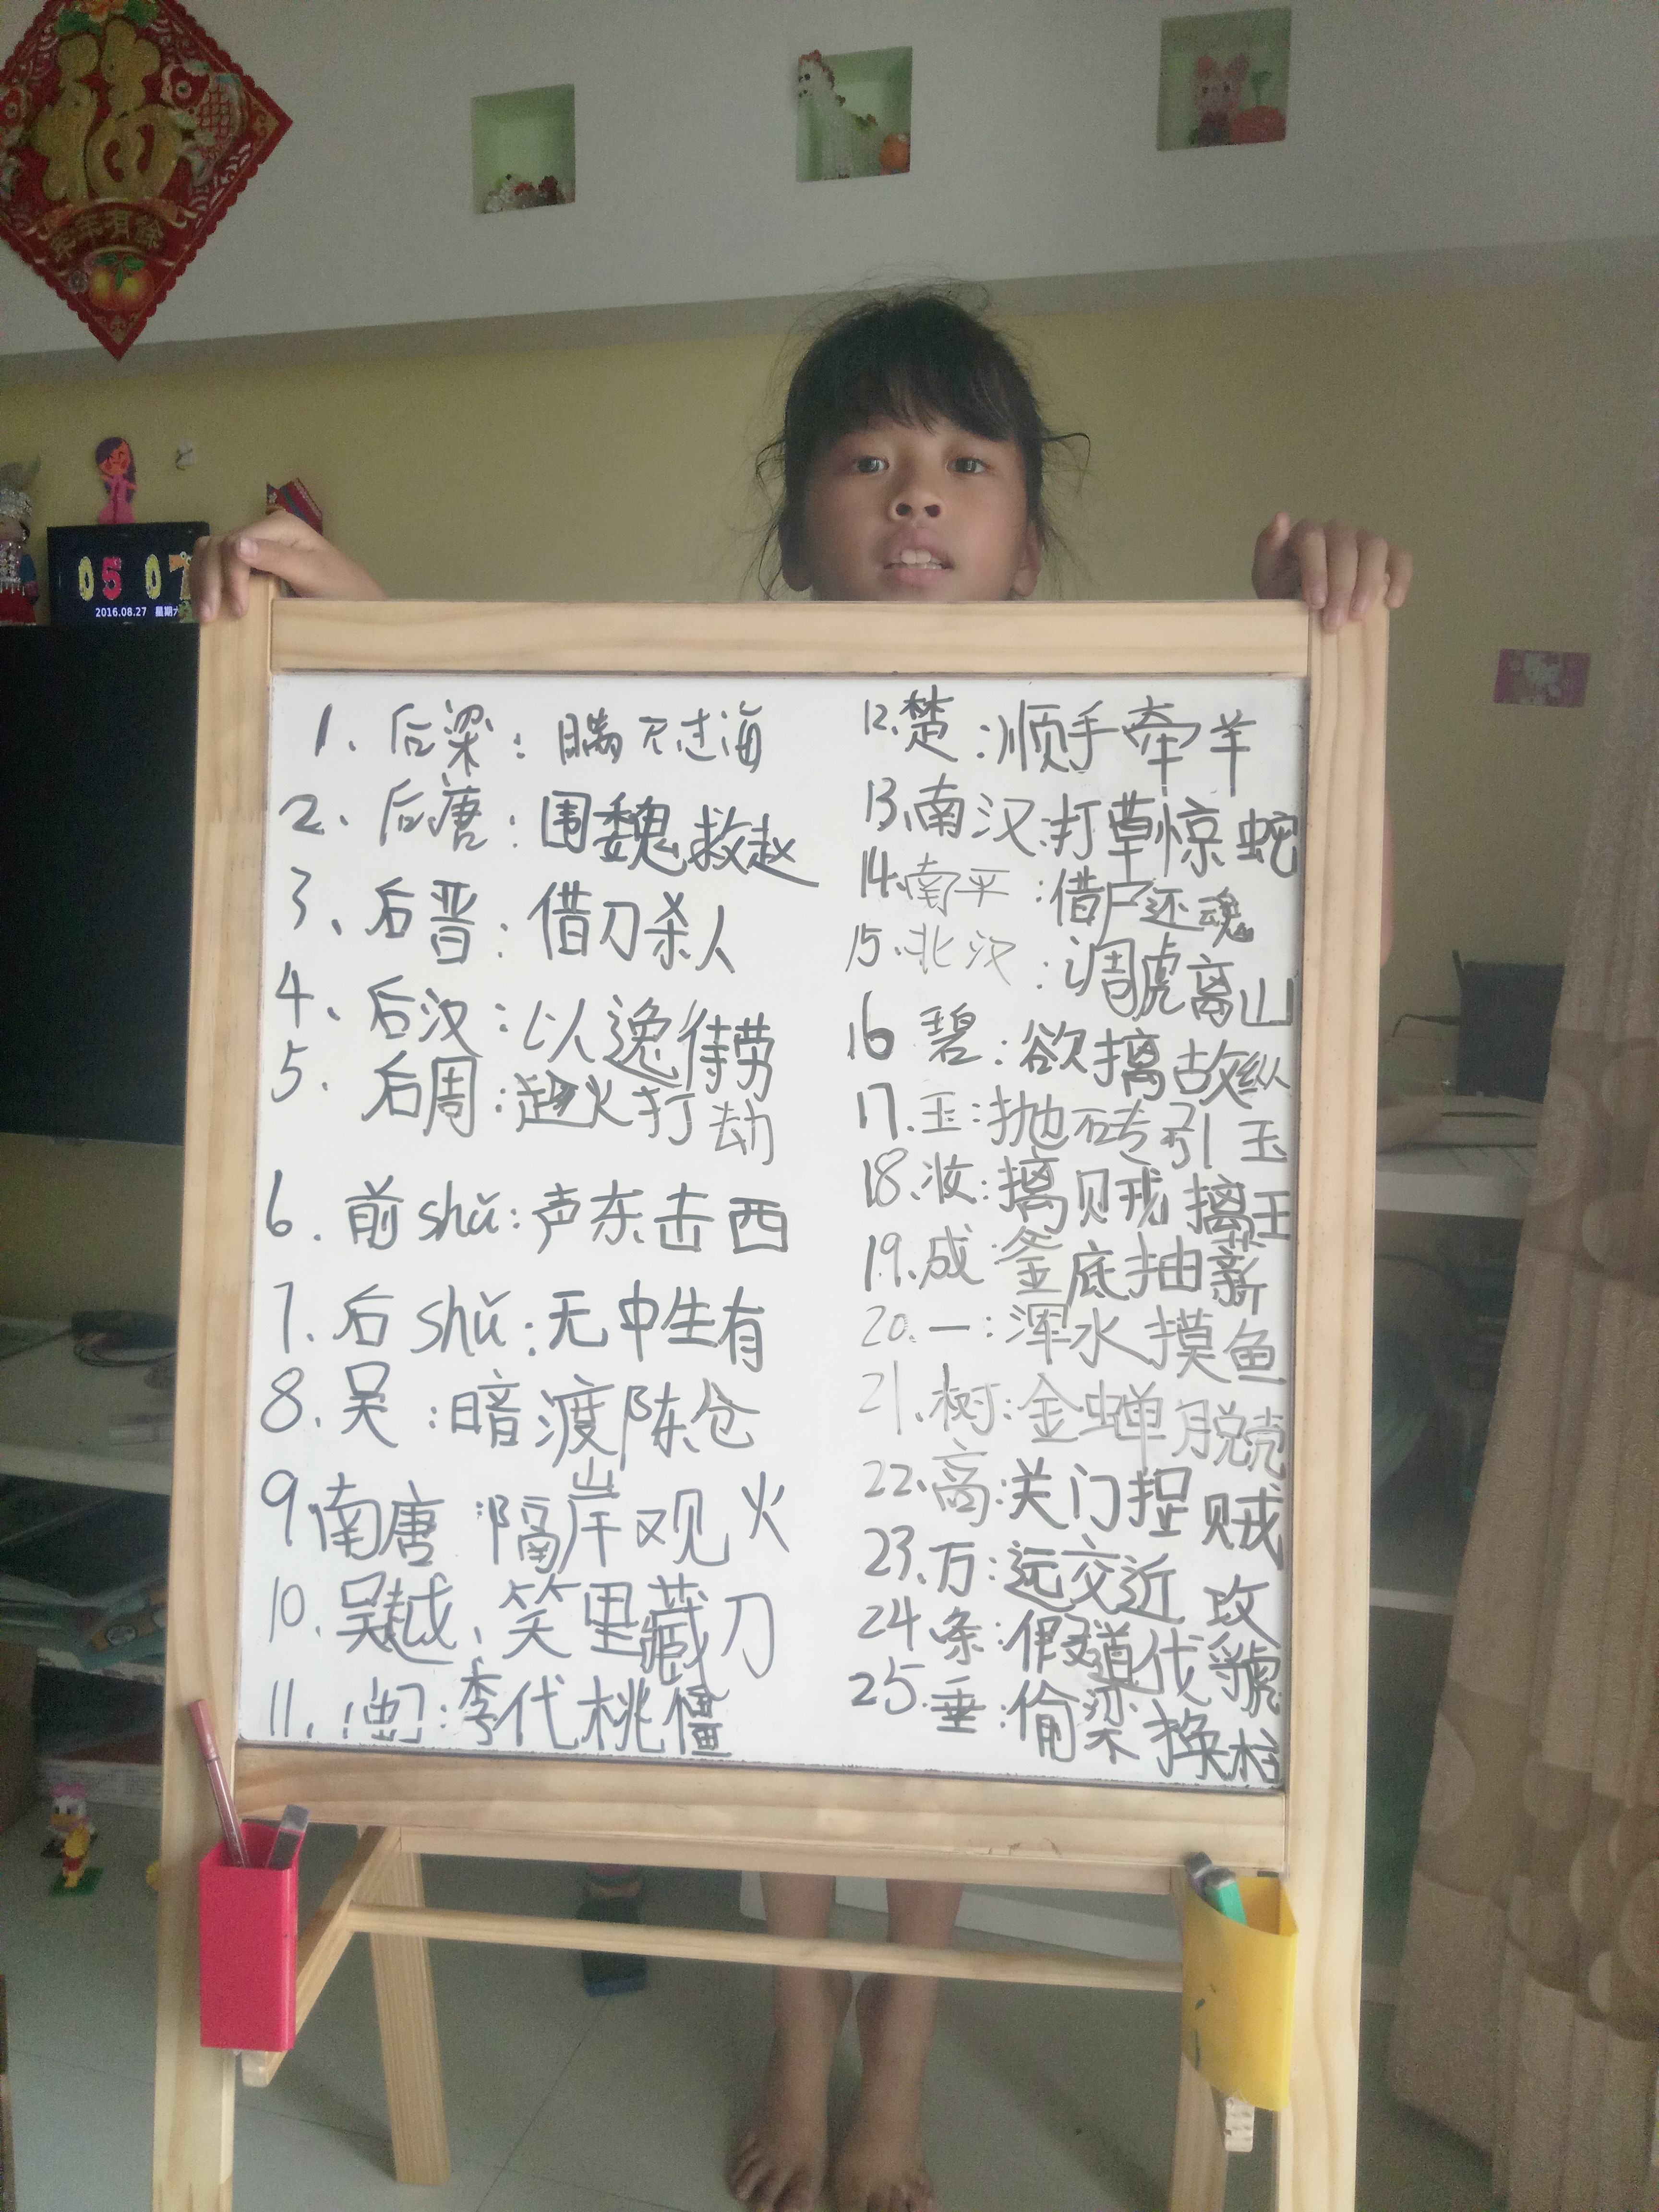 福
年年有餘
05 07
2016.08.27 星期六
1、后梁：瞒天过海
2、后唐：围魏救赵
3、后晋：借刀杀人
4、后汉：以逸待劳
5、后周：趁火打劫
6、前shǔ：声东击西
7、后shǔ：无中生有
8、吴：暗渡陈仓
9南唐：隔岸观火
10、吴越、笑里藏刀
11、：李代桃僵
12、楚：顺手牵羊
13、南汉：打草惊蛇
14、南平：借尸还魂
15、北汉：调虎离山
16 碧：欲擒故纵
17、玉：抛砖引玉
18、妆：擒贼擒王
19、成：釜底抽薪
20、一：浑水摸鱼
21、树：金蝉脱壳
22、高：关门捉贼
23、万：远交近攻
24、条：假道伐虢
25、垂：偷梁换柱